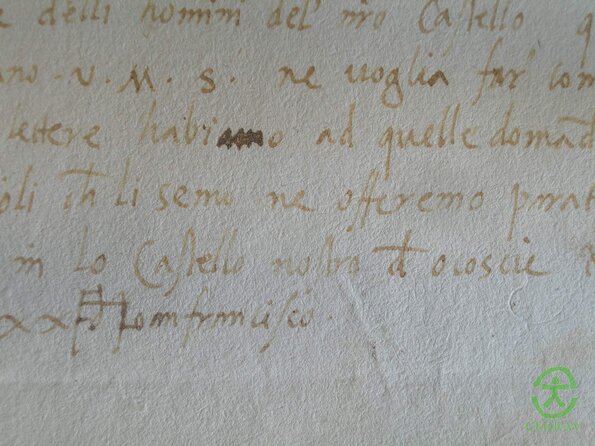 e delli homini del nro Castello q
ano . V. M. S. ne voglia far com
lettere habiamo ad quelle domad
li semo ne offeremo parat
in lo Castello nostro d
xx Joanfrancisco.